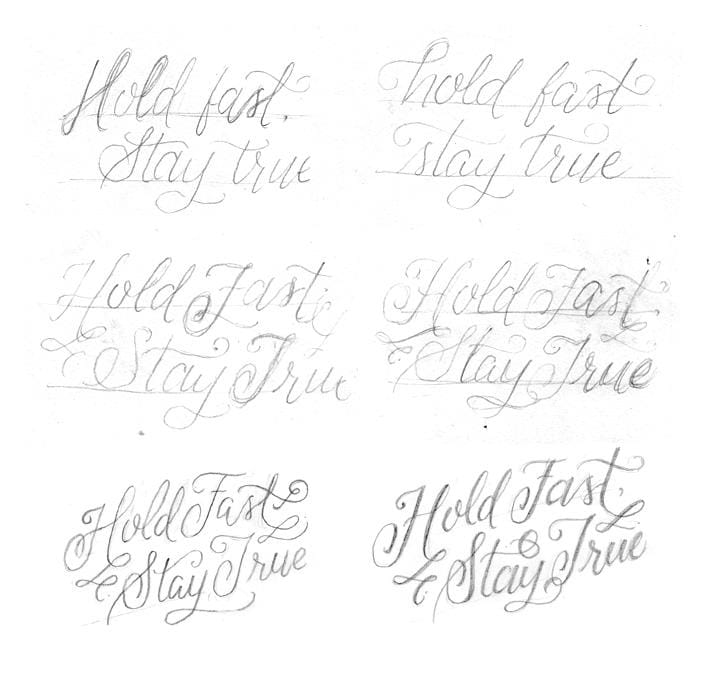 Hold fast.
Stay true
hold fast
stay true
Hold Fast.
& Stay True
Hold Fast.
& Stay True
Hold Fast
& Stay True
Hold Fast.
& Stay True